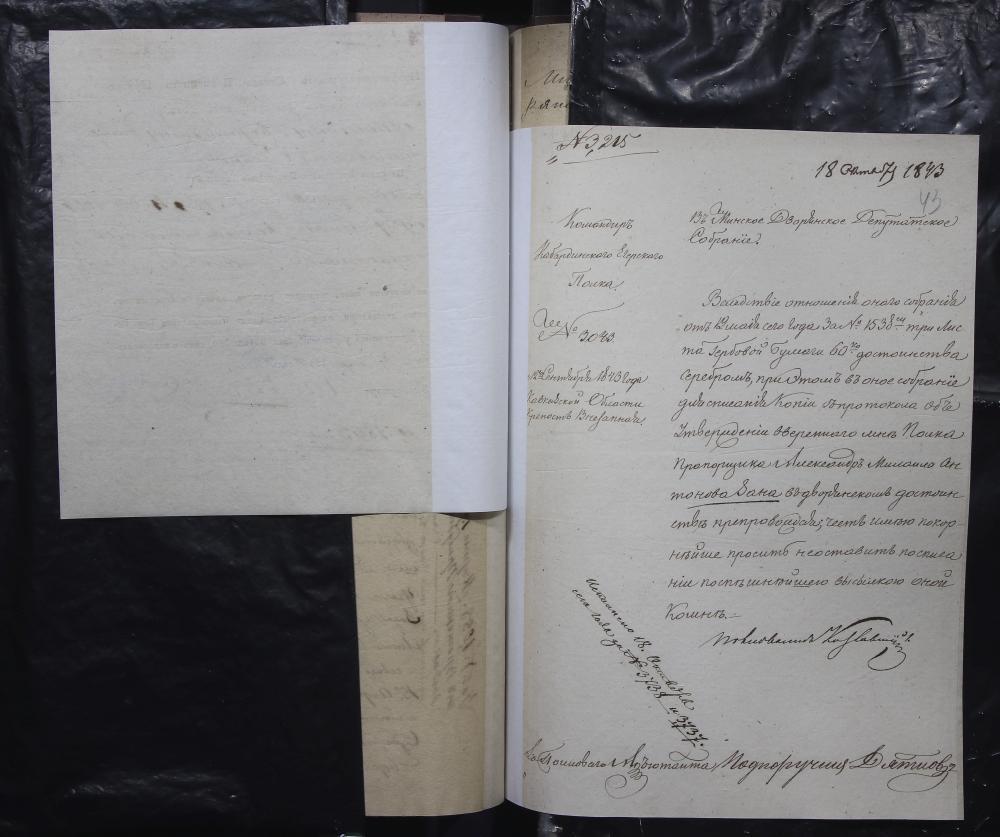 № 3,215
18 Октяб 1843
43
Командиръ
Кабардинскаго Егерскаго
Полка.
№ 3043.
12 Сентября 1843 года
Кавказской Области
Крепость Внезапная.
Въ Минское Дворянское Депутатское
Собраніе.
Вследствіе отношенія онаго собранія
отъ маія сего года За № 1538 три лис
та Гербовой бумаги 60 достоинства
серебромъ, при этомъ въ оное собраніе
для списанія Копіи съ протокола объ
Утвержденіи ввереннаго мне Полка
Прапорщика Александръ Михаила Ан
тонова Бана въ дворянскомъ достоин-
стве препровождая; честь имею покор-
нейше просить неоставить по списа
ніи поспешнейшею высылкою оной
Коммъ.
Полковникъ Козловскій
Исполнено 18. Октября
сего года за № 3738 и 3737.
За Полковаго Адъютанта Подпоручикъ